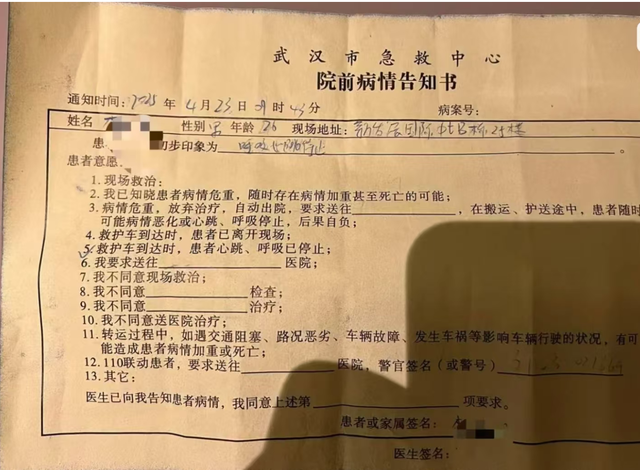 武汉市急救中心
院前病情告知书
通知时间：2025年4月23日 时43分 病案号：
姓名 性别 男 年龄 26 现场地址：新发展国际 24楼
患 初步印象为 呼吸心跳停止
患者意愿：
1. 现场救治；
2. 我已知晓患者病情危重，随时存在病情加重甚至死亡的可能；
3. 病情危重，放弃治疗，自动出院，要求送往 ，在搬运、护送途中，患者随时
可能病情恶化或心跳、呼吸停止，后果自负；
4. 救护车到达时，患者已离开现场；
5. 救护车到达时，患者心跳、呼吸已停止；
6. 我要求送往 医院；
7. 我不同意现场救治；
8. 我不同意 检查；
9. 我不同意 治疗；
10. 我不同意送医院治疗；
11. 转运过程中，如遇交通阻塞、路况恶劣、车辆故障、发生车祸等影响车辆行驶的状况，有可
能造成患者病情加重或死亡；
12. 110联动患者，要求送往 医院，警官签名（或警号）
13. 其它：
医生已向我告知患者病情，我同意上述第 项要求。
患者或家属签名：
医生签名：